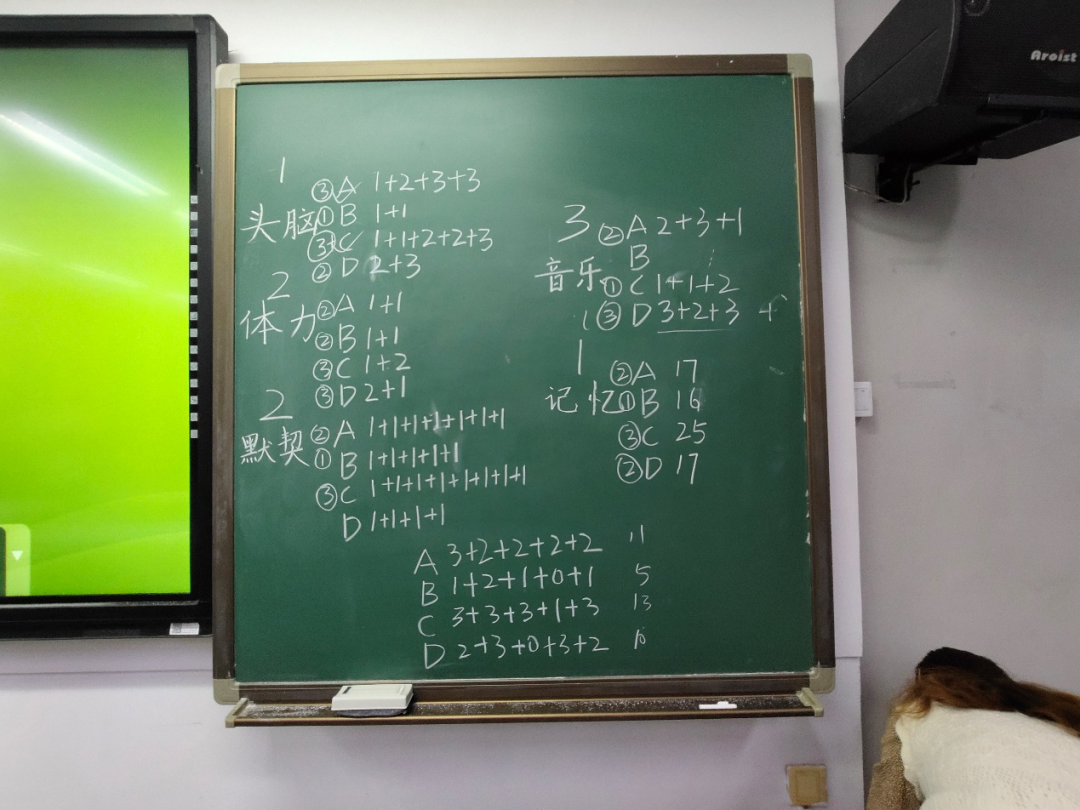 Aroist
1
③A 1+2+3+3
头脑①B 1+1
③C 1+1+2+2+3
②D 2+3
2
②A 1+1
体力②B 1+1
③C 1+2
③D 2+1
2
默契②A 1+1+1+1+1+1+1
①B 1+1+1+1+1
③C 1+1+1+1+1+1+1+1
D 1+1+1+1
3
②A 2+3+1
B
音乐①C 1+1+2
③D 3+2+3
1
②A 17
记忆①B 16
③C 25
②D 17
A 3+2+2+2+2 11
B 1+2+1+0+1 5
C 3+3+3+1+3 13
D 2+3+0+3+2 10